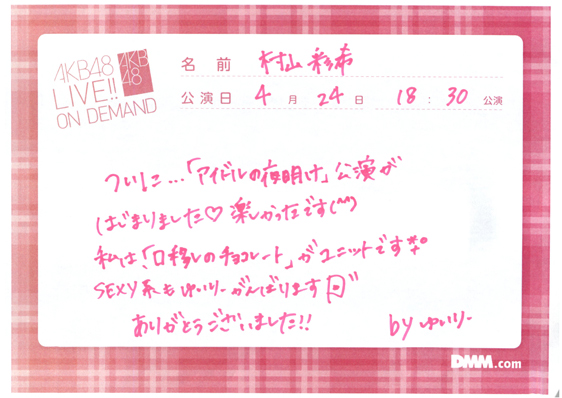 AKB48
LIVE!!
ON DEMAND
AKB
48
名前 村山彩希
公演日 4月24日 18:30公演
ついに...「アイドルの夜明け」公演が
はじまりました♡楽しかったです(^^)
私は、「口移しのチョコレート」がユニットです
SEXY系もゆいりーがんばります
ありがとうございました!!
by ゆいりー
DMM.com